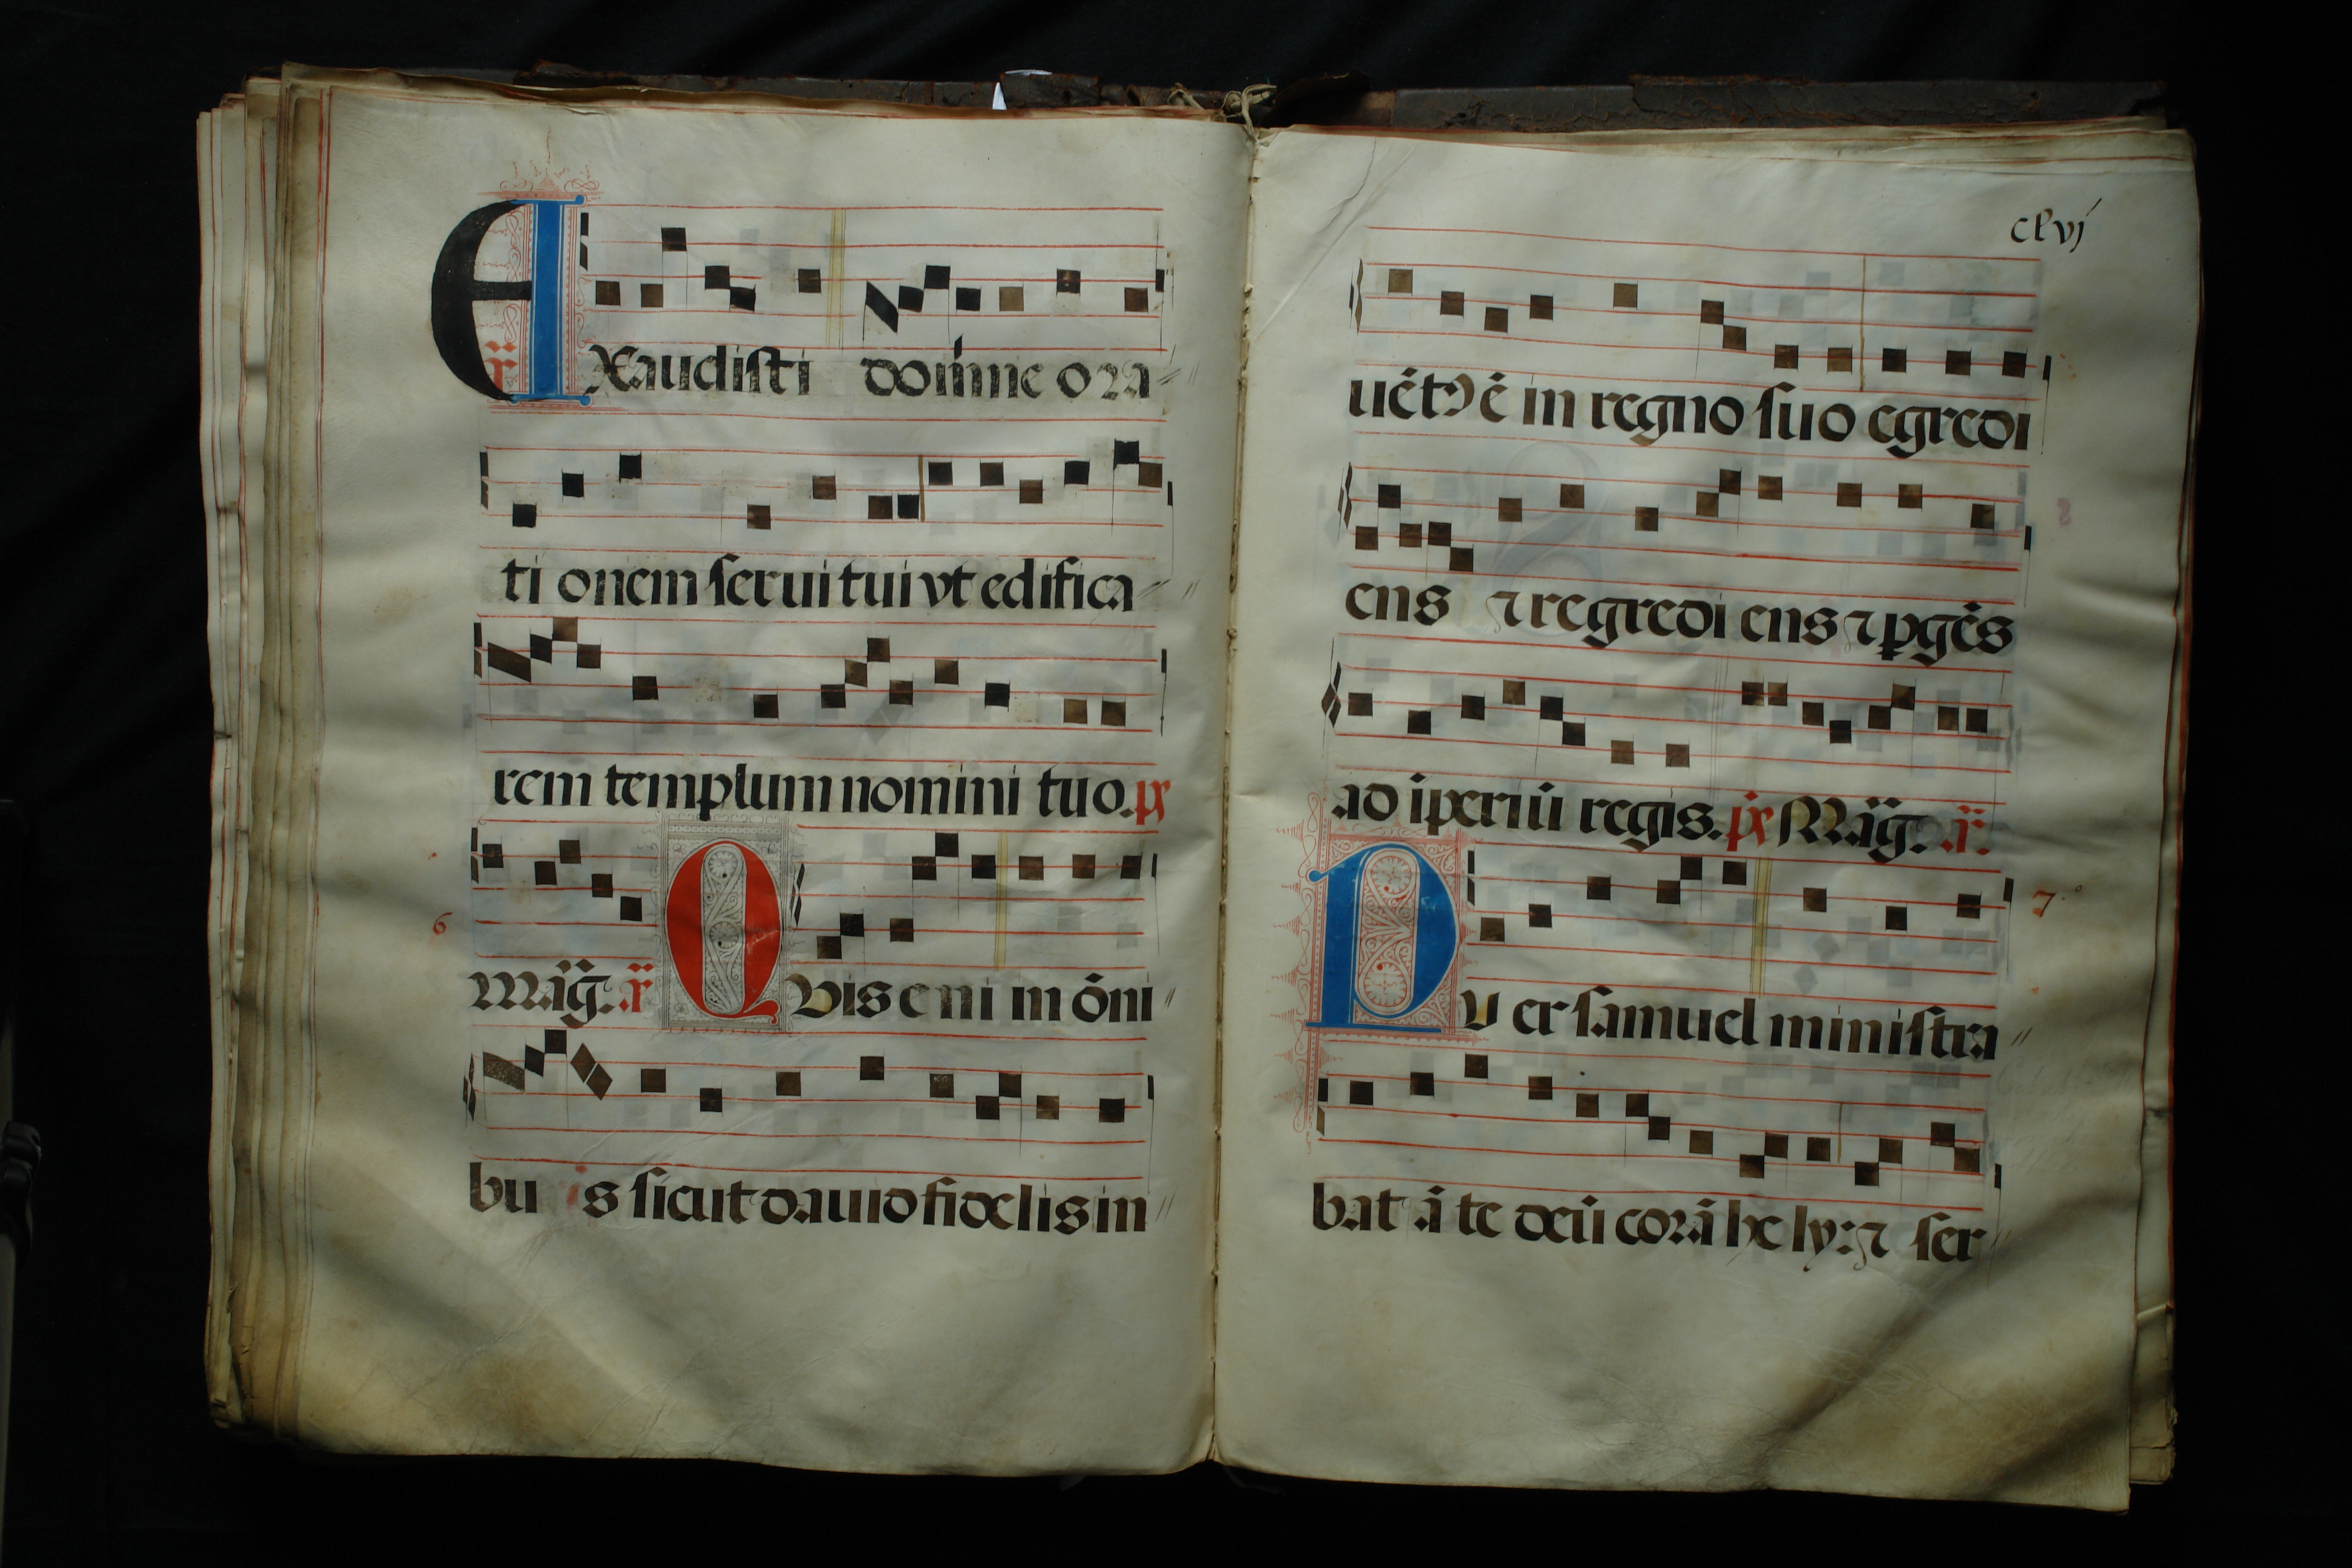 EXaudisti domine ora
ti onem serui tui vt edifica
rem templum nomini tuo. px
6
Mãg. ã QVis eni in õni
bu s sicut dauid fidelis in
clvj
uẽt9 ẽ in regno suo egredi
ens ⁊ regredi ens ⁊ pgẽs
ad iperiũ regis. px Mãg. ã.
7
PV er samuel ministra
bat ã te deũ corã hely: ⁊ ser